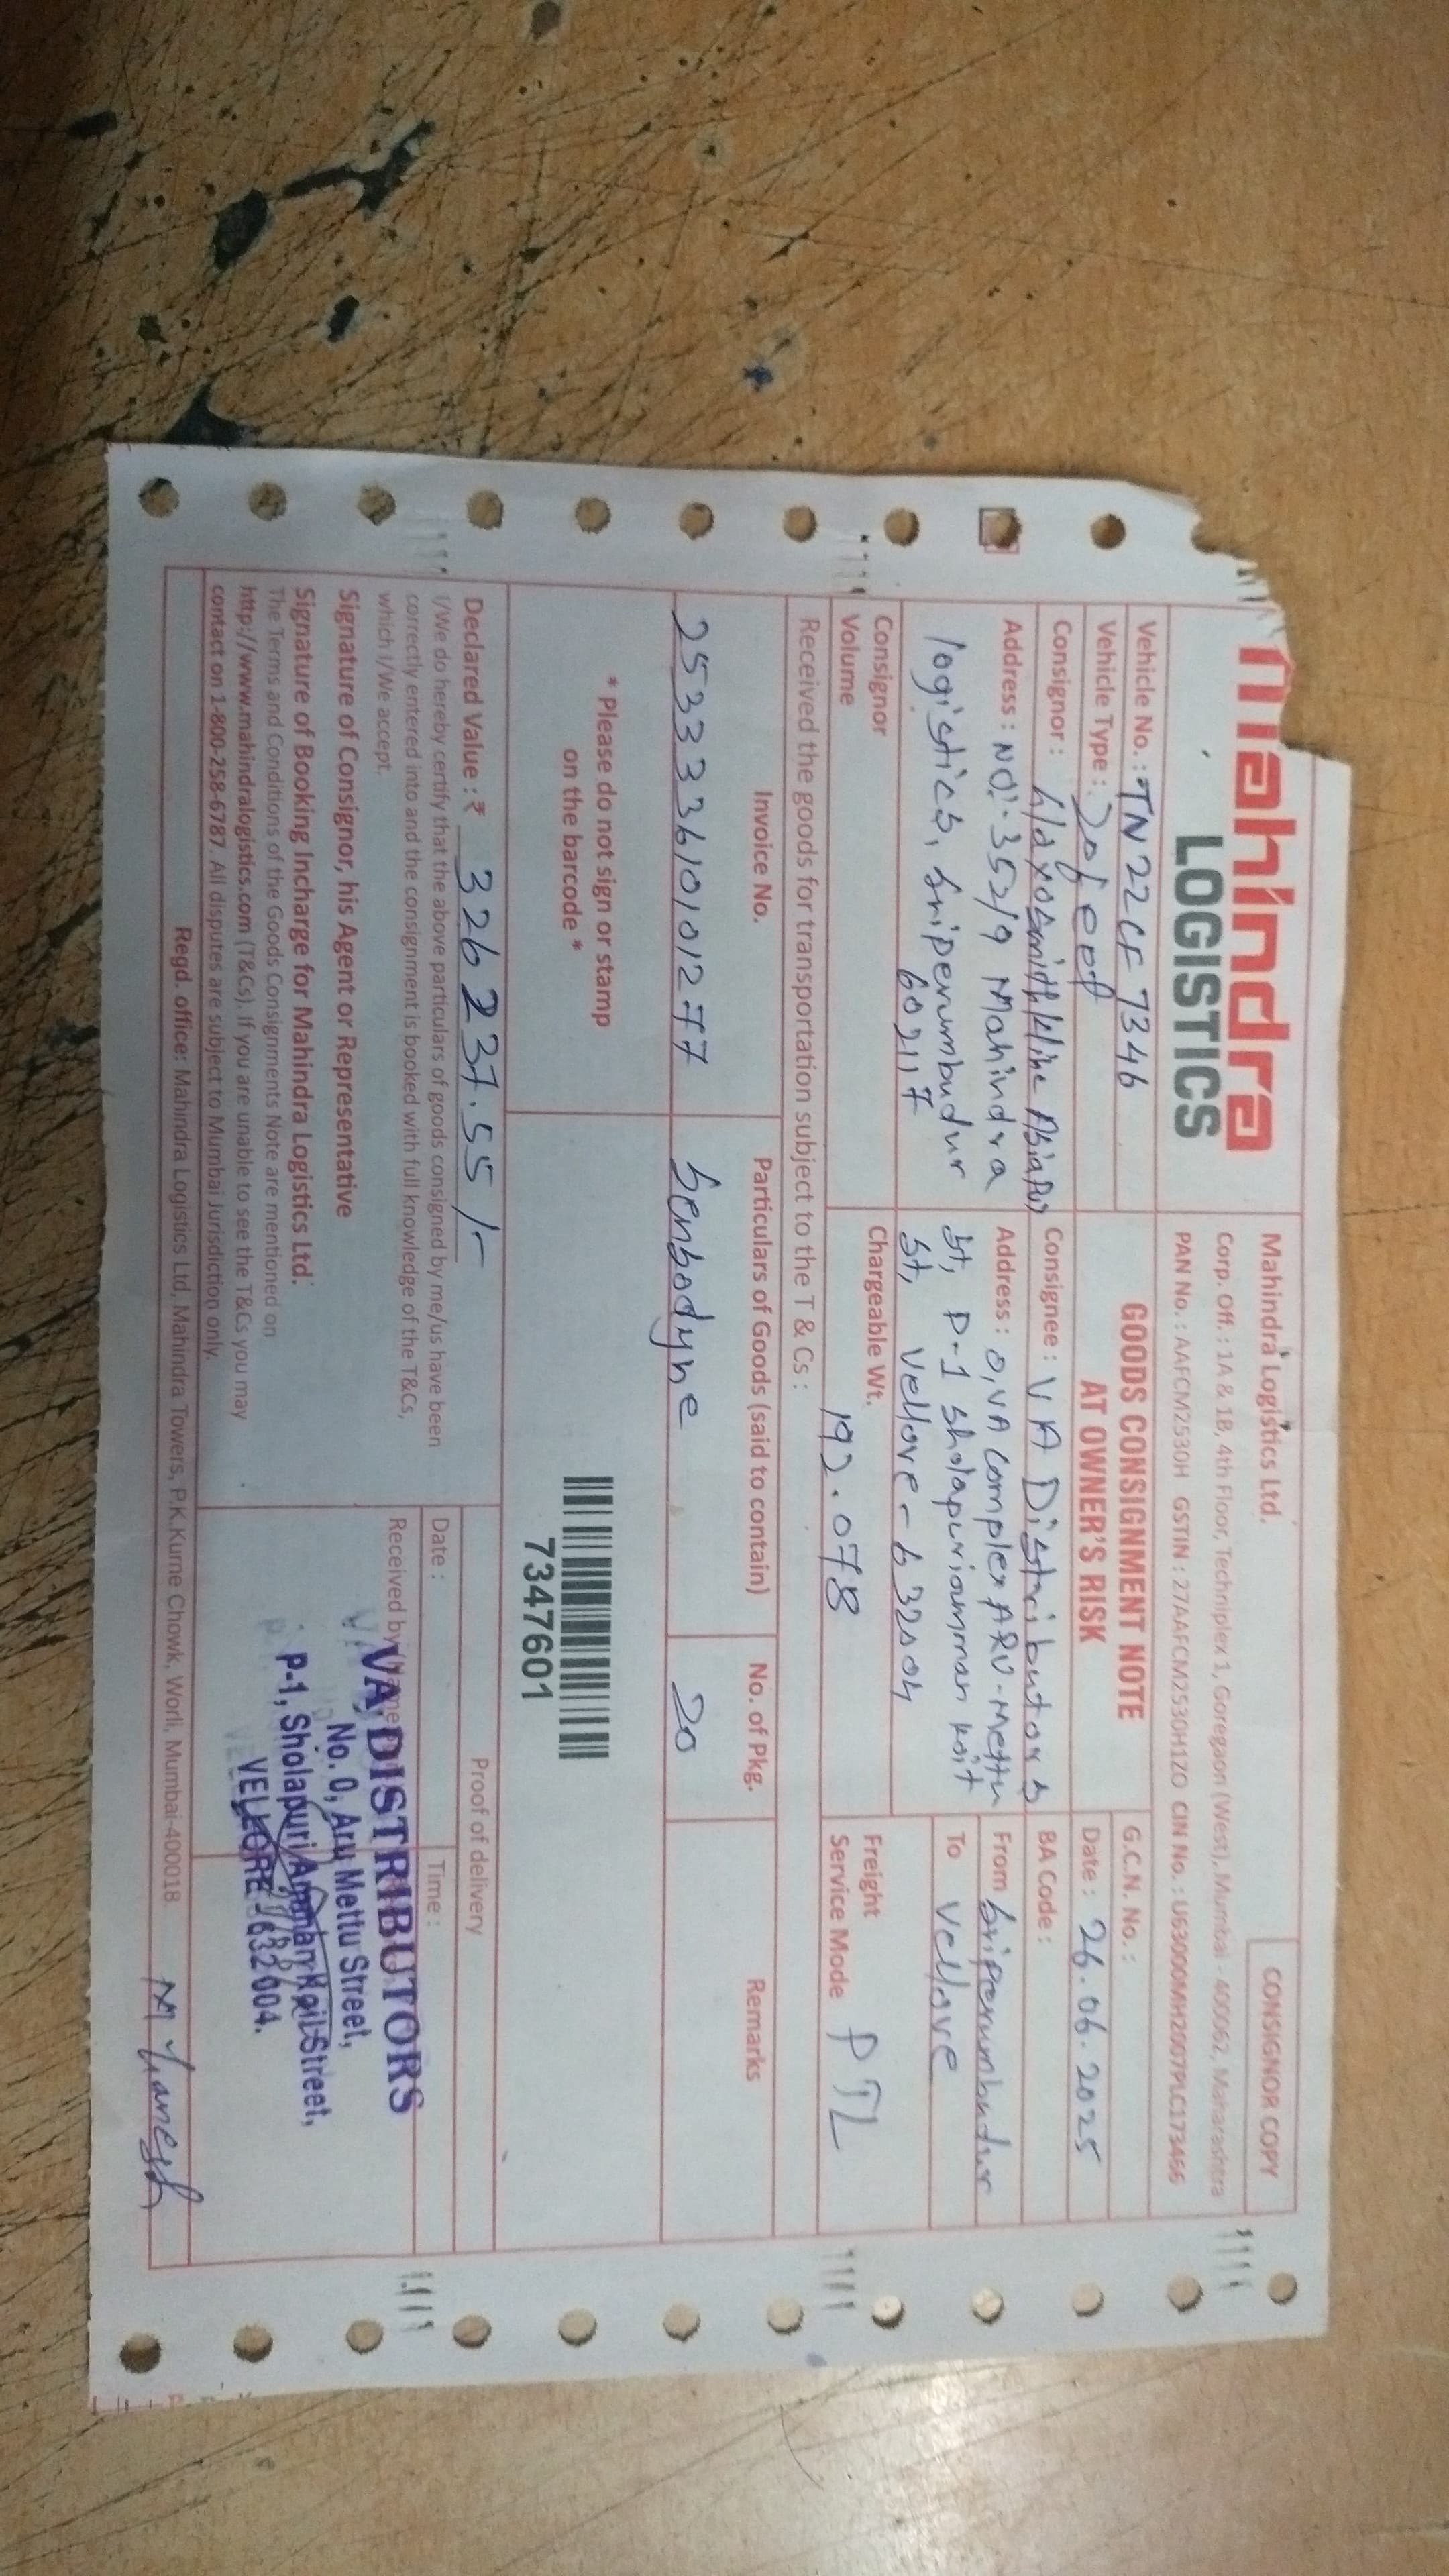 mahindra
LOGISTICS
Mahindra Logistics Ltd.
Corp. Off. : 1A & 1B, 4th Floor, Techniplex 1, Goregaon (West), Mumbai - 400062, Maharashtra
PAN No. : AAFCM2530H GSTIN : 27AAFCM2530H1ZO CIN No. : U63000MH2007PLC173466
CONSIGNOR COPY
Vehicle No. : TN22CF 7346
Vehicle Type :
GOODS CONSIGNMENT NOTE
AT OWNER'S RISK
G.C.N. No. :
Date : 26.06.2025
Consignor : Glaxosmithkline Asia
Consignee : VA Distributors
BA Code :
Address : NO:-352/9 Mahindra
logistics, Sriperumbudur
602117
Address : 0, VA Complex ARU-Mettu
St, P-1 Sholapuriamman koit
St, Vellore - 632004
From Sriperumbudur
To Vellore
Consignor
Volume
Chargeable Wt.
192.078
Freight
Service Mode PTL
Received the goods for transportation subject to the T & Cs :
Invoice No.
Particulars of Goods (said to contain)
No. of Pkg.
Remarks
253333610101277
Sensodyne
20
* Please do not sign or stamp
on the barcode *
7347601
Declared Value : ₹ 326237.55 /-
I/We do hereby certify that the above particulars of goods consigned by me/us have been
correctly entered into and the consignment is booked with full knowledge of the T&Cs,
which I/We accept.
Signature of Consignor, his Agent or Representative
Signature of Booking Incharge for Mahindra Logistics Ltd.
The Terms and Conditions of the Goods Consignments Note are mentioned on
http://www.mahindralogistics.com (T&Cs). If you are unable to see the T&Cs you may
contact on 1-800-258-6787. All disputes are subject to Mumbai Jurisdiction only.
Proof of delivery
Date :
Time :
Received by
VA DISTRIBUTORS
No. 0, Aru Mettu Street,
P-1, Sholapuri Amman Koil Street,
VELLORE - 632 004.
Regd. office: Mahindra Logistics Ltd, Mahindra Towers, P.K.Kurne Chowk, Worli, Mumbai-400018